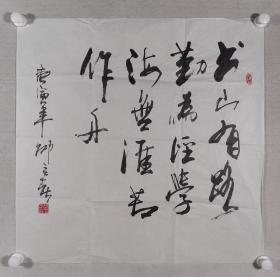 书山有路
勤为径学
海无涯苦
作舟
庚寅年